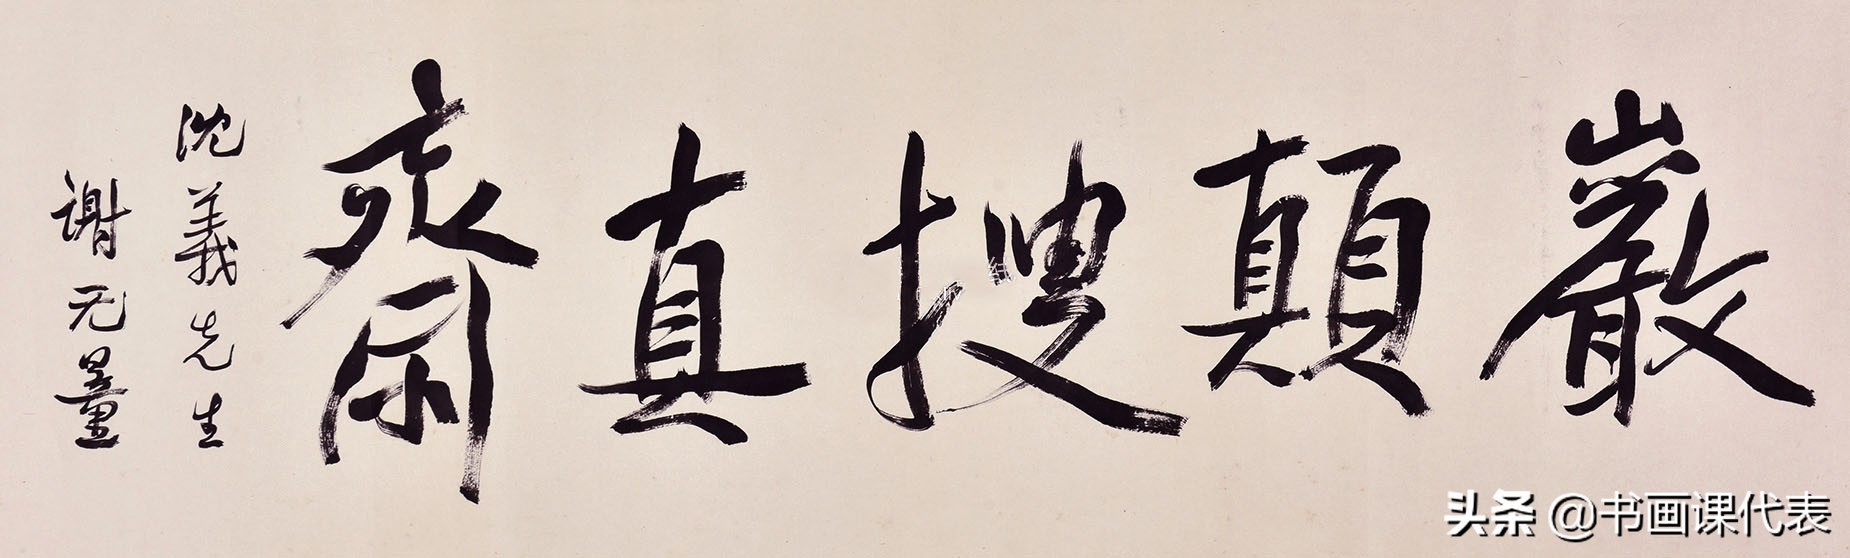 巖顛搜真齋
沈義先生
谢无量
头条 @书画课代表